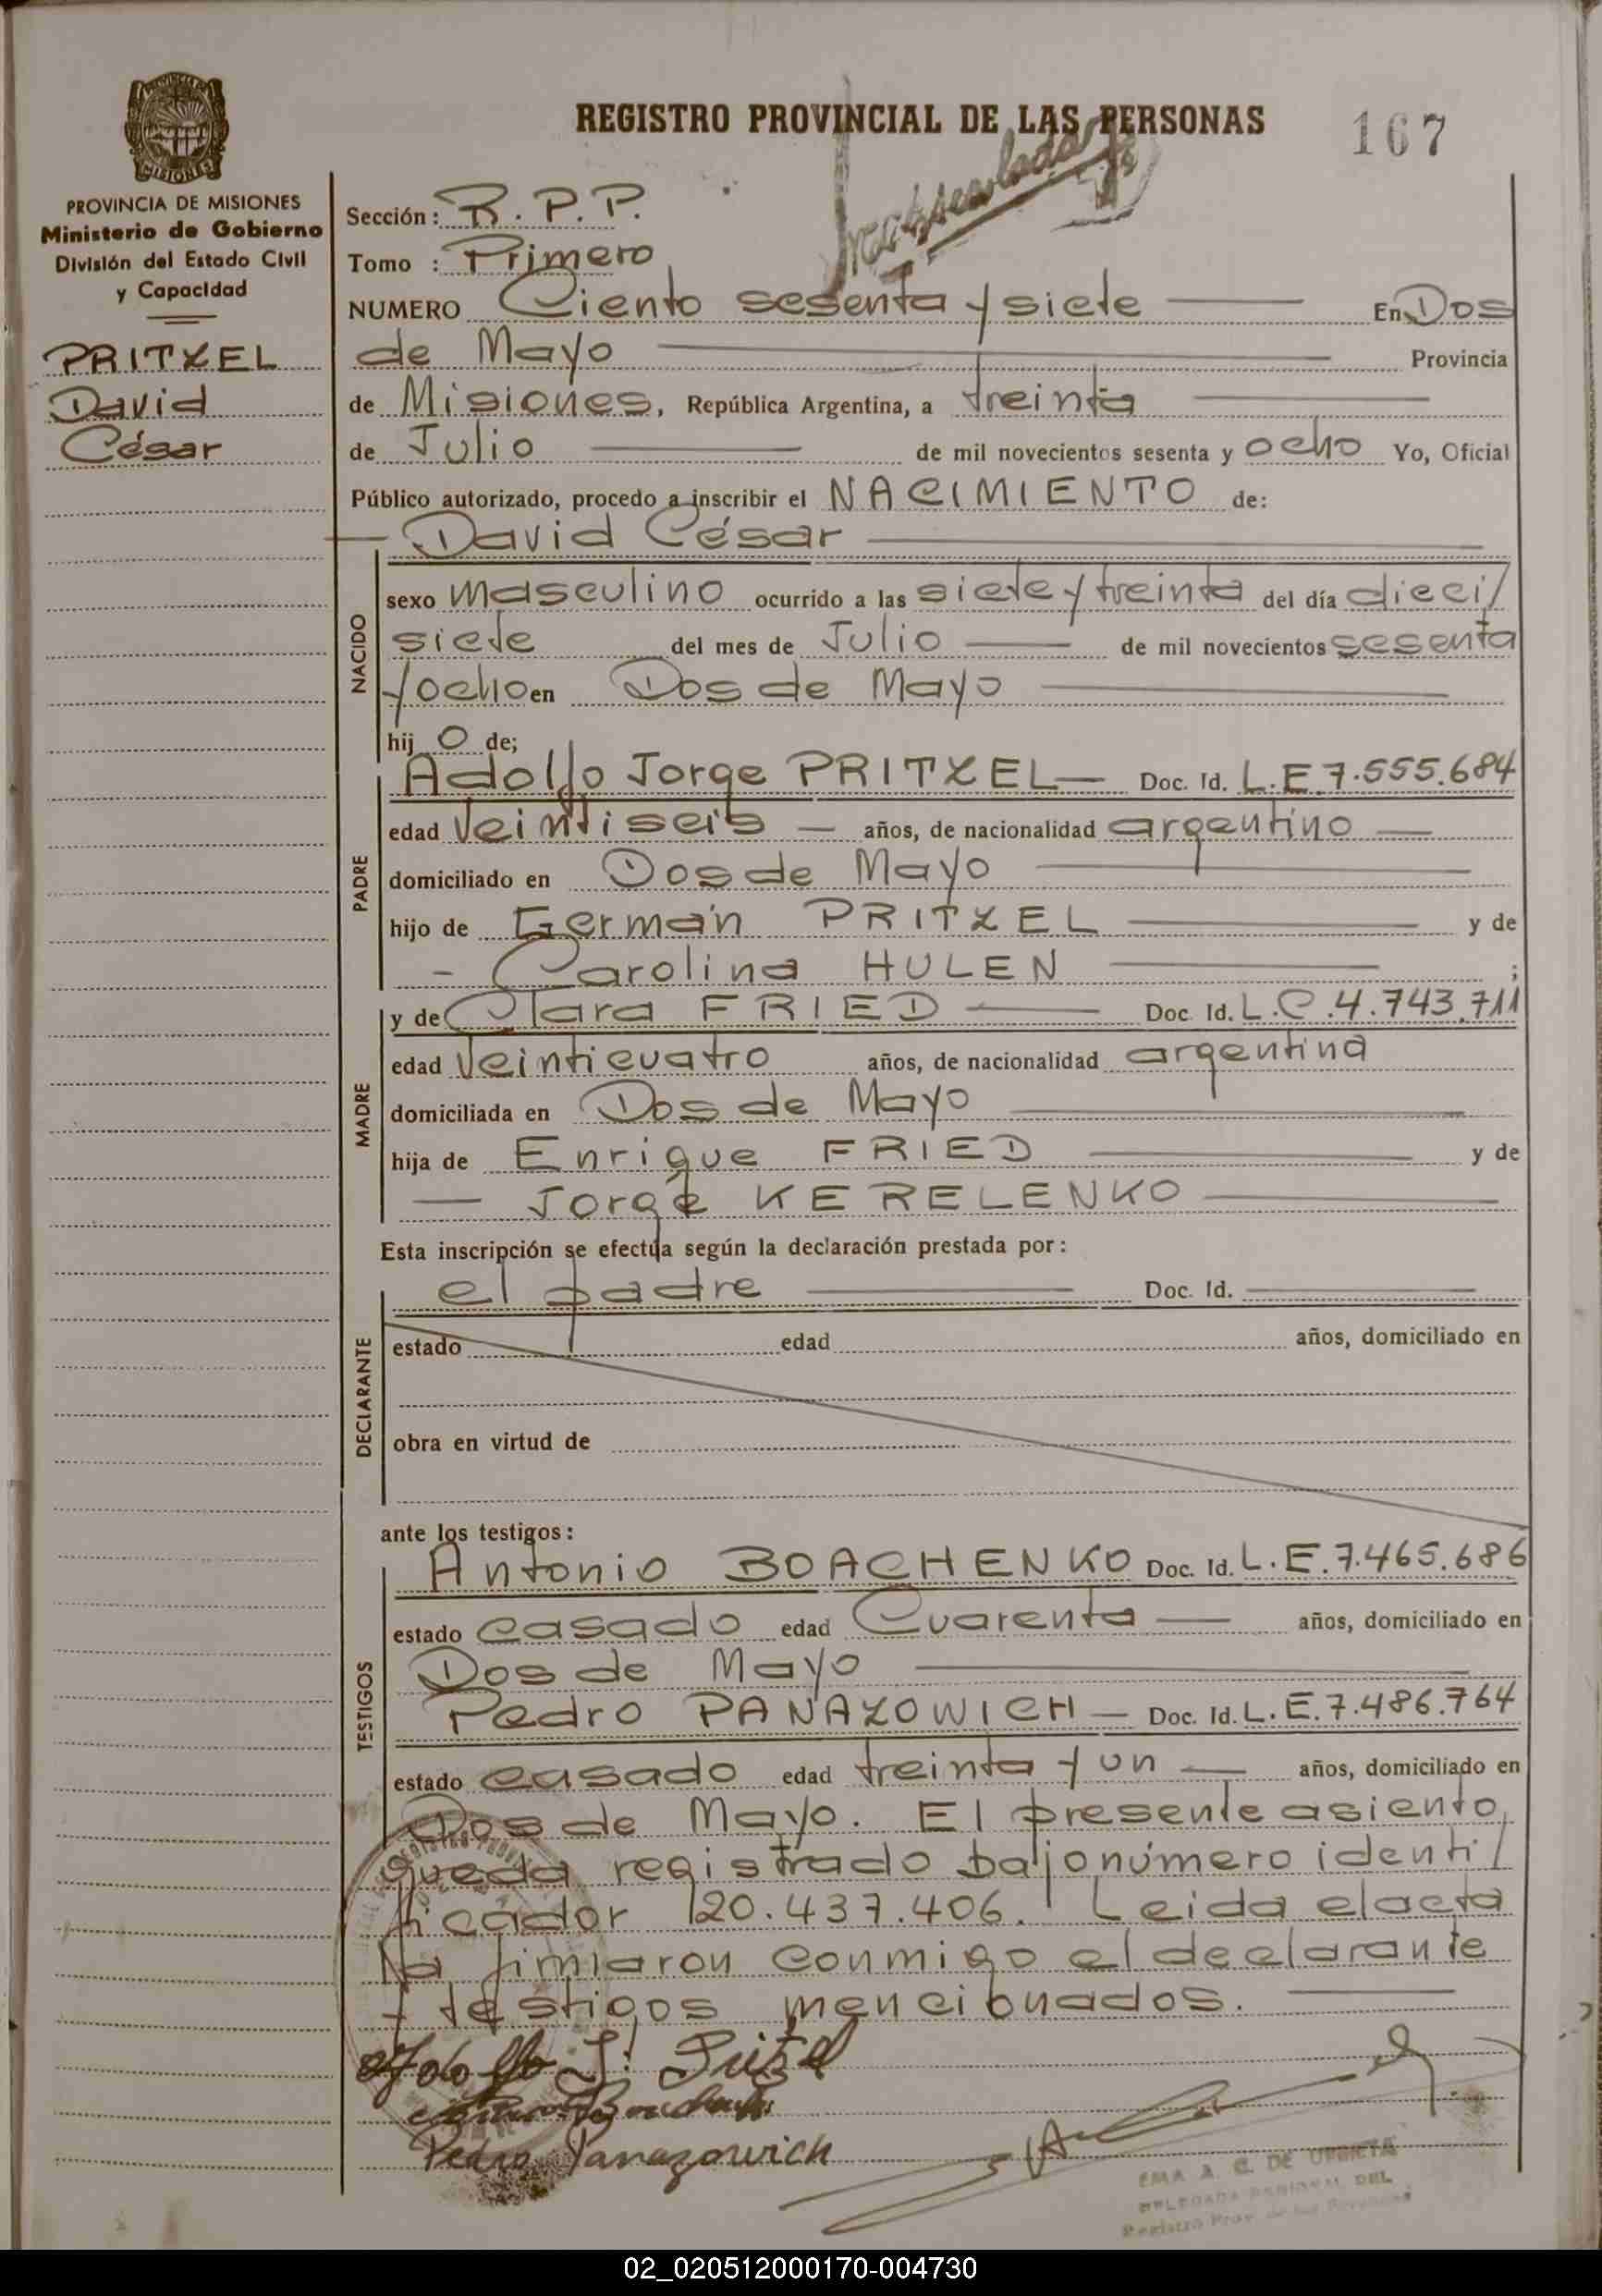 REGISTRO PROVINCIAL DE LAS PERSONAS
167
PROVINCIA DE MISIONES
Ministerio de Gobierno
División del Estado Civil
y Capacidad
PRITZEL
David
César
Sección: R. P. P.
Tomo : Primero
NUMERO Ciento sesenta y siete En Dos
de Mayo Provincia
de Misiones, República Argentina, a treinta
de Julio de mil novecientos sesenta y ocho Yo, Oficial
Público autorizado, procedo a inscribir el NACIMIENTO de:
David César
NACIDO
sexo masculino ocurrido a las siete y treinta del día dieci/
siete del mes de Julio de mil novecientos sesenta
y ocho en Dos de Mayo
hij o de;
PADRE
Adolfo Jorge PRITZEL Doc. Id. L.E 7.555.684
edad veintiseis años, de nacionalidad argentino
domiciliado en Dos de Mayo
hijo de Germán PRITZEL y de
Carolina HULEN ;
MADRE
y de Clara FRIED Doc. Id. L.C.4.743.711
edad veinticuatro años, de nacionalidad argentina
domiciliada en Dos de Mayo
hija de Enrique FRIED y de
Jorge KERELENKO
Esta inscripción se efectúa según la declaración prestada por:
DECLARANTE
el padre Doc. Id.
estado edad años, domiciliado en
obra en virtud de
ante los testigos:
TESTIGOS
Antonio BOACHENKO Doc. Id. L.E.7.465.686
estado casado edad Cuarenta años, domiciliado en
Dos de Mayo
Pedro PANAZOWICH Doc. Id. L.E.7.486.764
estado casado edad treinta y un años, domiciliado en
Dos de Mayo. El presente asiento,
queda registrado bajo número identi/
ficador 20.437.406. Leida el acta
la firmaron conmigo el declarante
y testigos mencionados.
Adolfo J. Pritzel
Pedro Panazowich
EMA A. C. DE URBIETA
DELEGADA REGIONAL DEL
Registro Prov. de las Personas
02_020512000170-004730